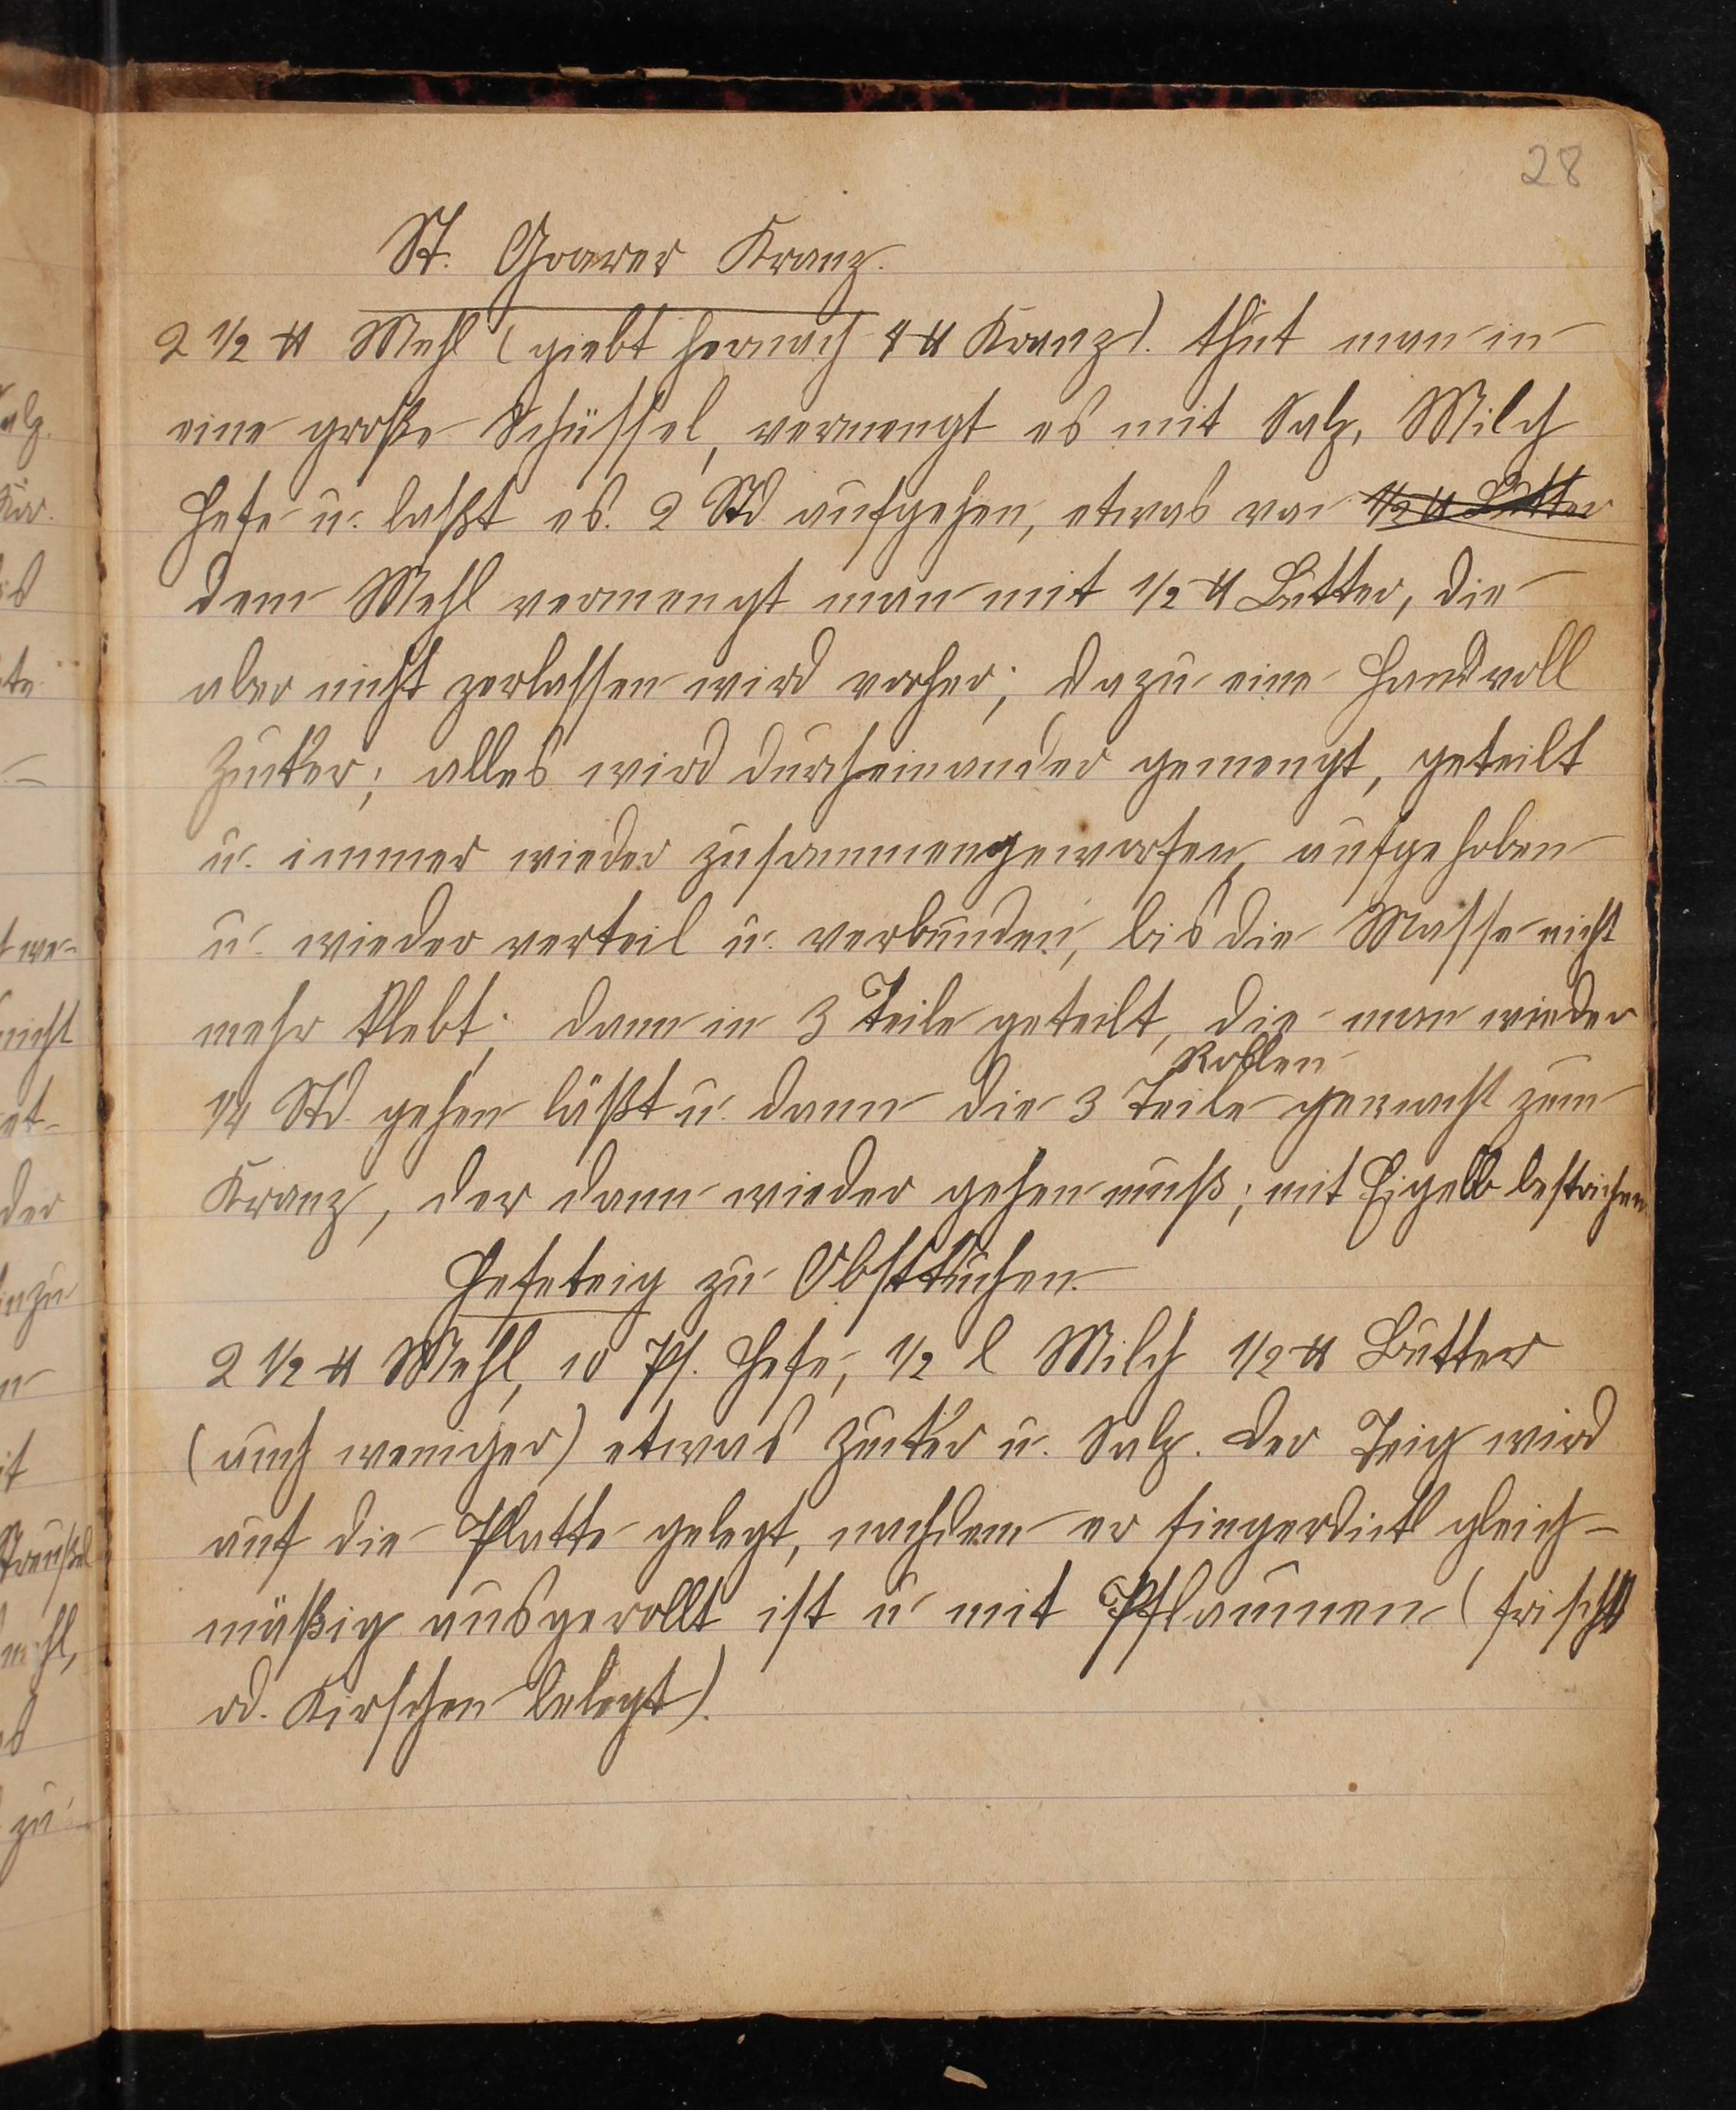 28
St. Goarer Kranz.
2 1/2 ℔ Mehl (giebt hernach 4 ℔ Kranz). thut man in
eine große Schüssel, vermengt es mit Salz, Milch
Hefe u. laßt es. 2 Std aufgehen, etwas von 1/2 ℔ Butter
dem Mehl vermengt man mit 1/2 ℔ Butter, die
aber nicht zerlassen wird vorher; dazu eine Handvoll
Zucker; alles wird durcheinander gemengt, geteilt
u. immer wieder zusammengeworfen, aufgehoben
u. wieder verteil u. verbunden, bis die Masse nicht
mehr klebt; dann in 3 Teile geteilt, die man wieder
Rollen
1/4 Std. gehen läßt u. dann die 3 Teile gemacht zum
Kranz, der dann wieder gehen muß; mit Eigelb bestrichen.
Hefeteig zu Obstkuchen.
2 1/2 ℔ Mehl, 10 Pf. Hefe, 1/2 l Milch 1/2 ℔ Butter
(auch weniger) etwas Zucker u. Salz. Der Teig wird
auf die Platte gelegt, nachdem er fingerdick gleich-
mäßig ausgerollt ist u mit Pflaumen (frisch
od. Kirschen belegt).